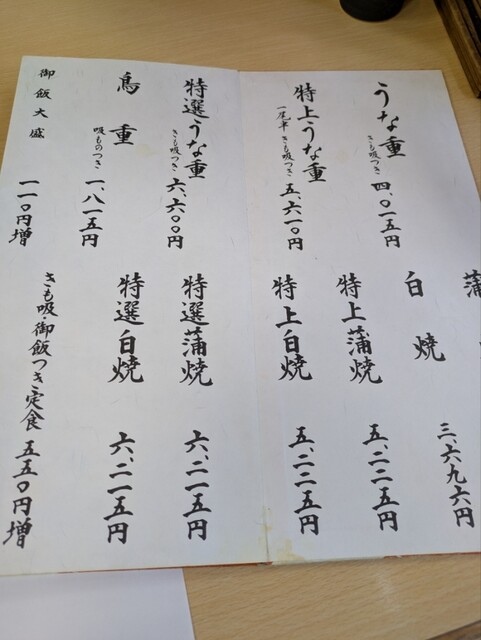 うな重
きも吸つき
四、〇一五円
特上うな重
一尾半
きも吸つき
五、六一〇円
特選うな重
きも吸つき
六、六〇〇円
鳥重
吸ものつき
一、八一五円
御飯大盛
一一〇円増
蒲
白焼
三、六九六円
特上蒲焼
五、二二五円
特上白焼
五、二二五円
特選蒲焼
六、二一五円
特選白焼
六、二一五円
きも吸・御飯つき定食
五五〇円増